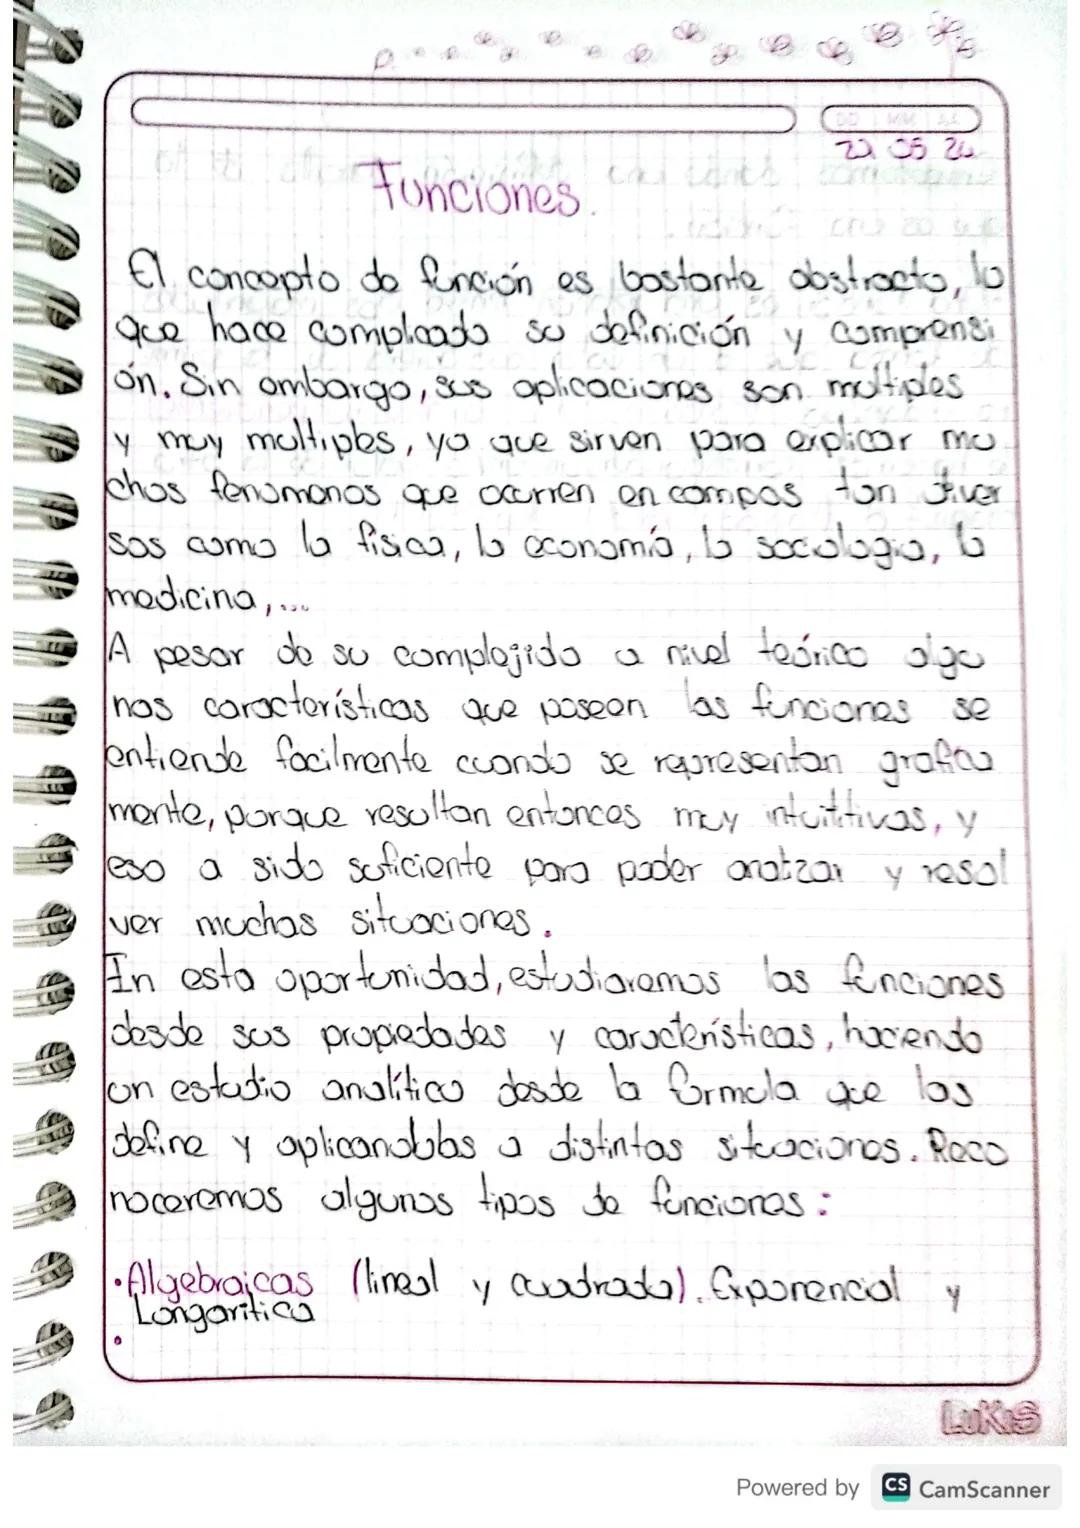 DD MM AA
22 05 24
Funciones.
El concepto de función es bastante abstracto, lo
que hace complicado su definición y comprensi
ón. Sin embargo, sus aplicaciones son multiples
y muy multiples, ya que sirven para explicar mu
chos fenomenos que ocurren en campos tan diver
sos como la fisica, la economía, la sociologia, la
medicina,...
A pesar de su complejida a nivel teórico algu
nas características que poseen las funciones se
entiende facilmente cuando se representan grafica
mente, porque resultan entonces muy intuititivas, y
eso a sido suficiente para poder analizar y resol
ver muchas situaciones.
In esta oportunidad, estudiaremos las funciones
desde sus propiedades y características, haciendo
un estudio analítico desde la formula que las
define y aplicandolas a distintas situaciones. Reco
noceremos algunos tipos de funciones:
•Algebraicas (lineal y cuadrada). Exponencial y
Longaritica
•
LUKAS
Powered by CS CamScanner